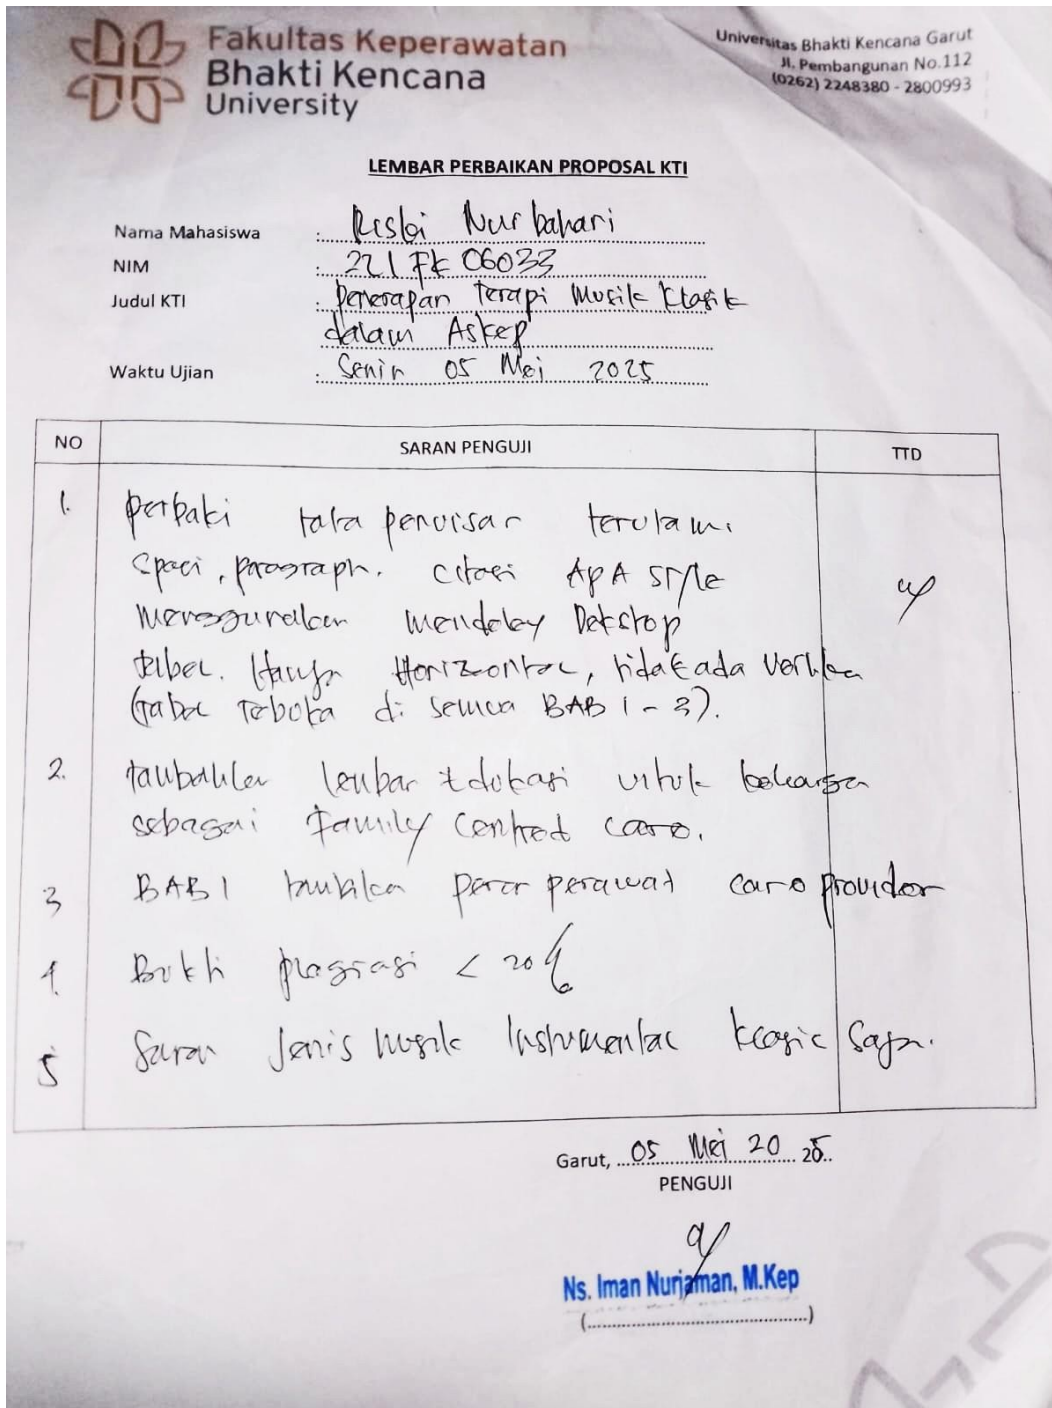 Fakultas Keperawatan
Bhakti Kencana
University
Universitas Bhakti Kencana Garut
Jl. Pembangunan No.112
(0262) 2248380 - 2800993
LEMBAR PERBAIKAN PROPOSAL KTI
Nama Mahasiswa : Risbi Nurbahari
NIM : 221 FK 06033
Judul KTI : Penerapan terapi Musik Klasik
dalam Askep
Waktu Ujian : Senin 05 Mei 2025
NO SARAN PENGUJI TTD
1. perbaki tata penulisan terutama
spaci, paragraph. citasi APA style
Menggunakan mendeley Dekstop
tabel. Hanya Horizontal, tidak ada Vertikal
(tabel terbuka di semua BAB 1 - 3).
2. tambahkan lembar Edukasi untuk keluarga
sebagai Family Centred care.
3 BAB 1 peran perawat care provider
4. Bukti plagiasi < 20%
5 Saran Jenis musik Instrumental klasic Saja.
Garut, 05 Mei 2025
PENGUJI
Ns. Iman Nurjaman, M.Kep
(....................)